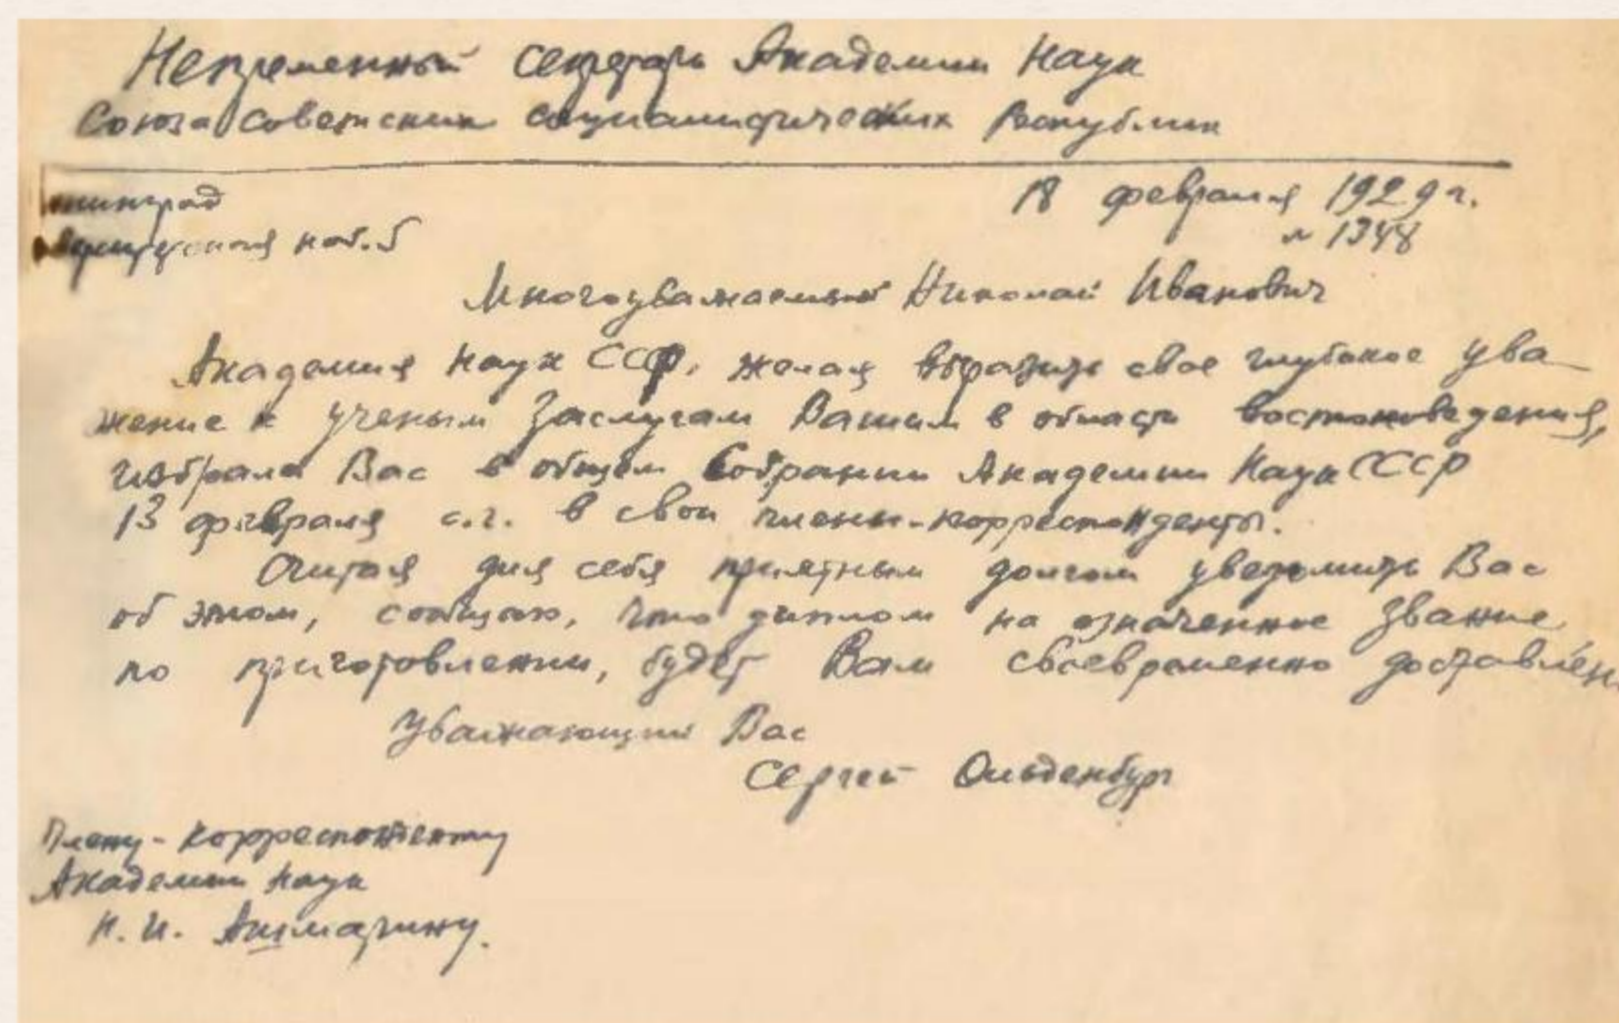 Непременный секретарь Академии Наук
Союза Советских Социалистических Республик
18 февраля 1929 г.
нинград
№ 1348
наб. 5
Многоуважаемый Николай Иванович
Академия Наук СССР, желая выразить свое глубокое ува-
жение к ученым заслугам Вашим в области востоковедения,
избрала Вас в общем Собрании Академии Наук СССР
13 февраля с.г. в свои члены-корреспонденты.
Считая для себя приятным долгом уведомить Вас
об этом, сообщаю, что диплом на означенное звание
по приготовлении, будет Вам своевременно доставлен
Уважающий Вас
Сергей Ольденбург
Члену-корреспонденту
Академии Наук
Н. И. Ашмарину.